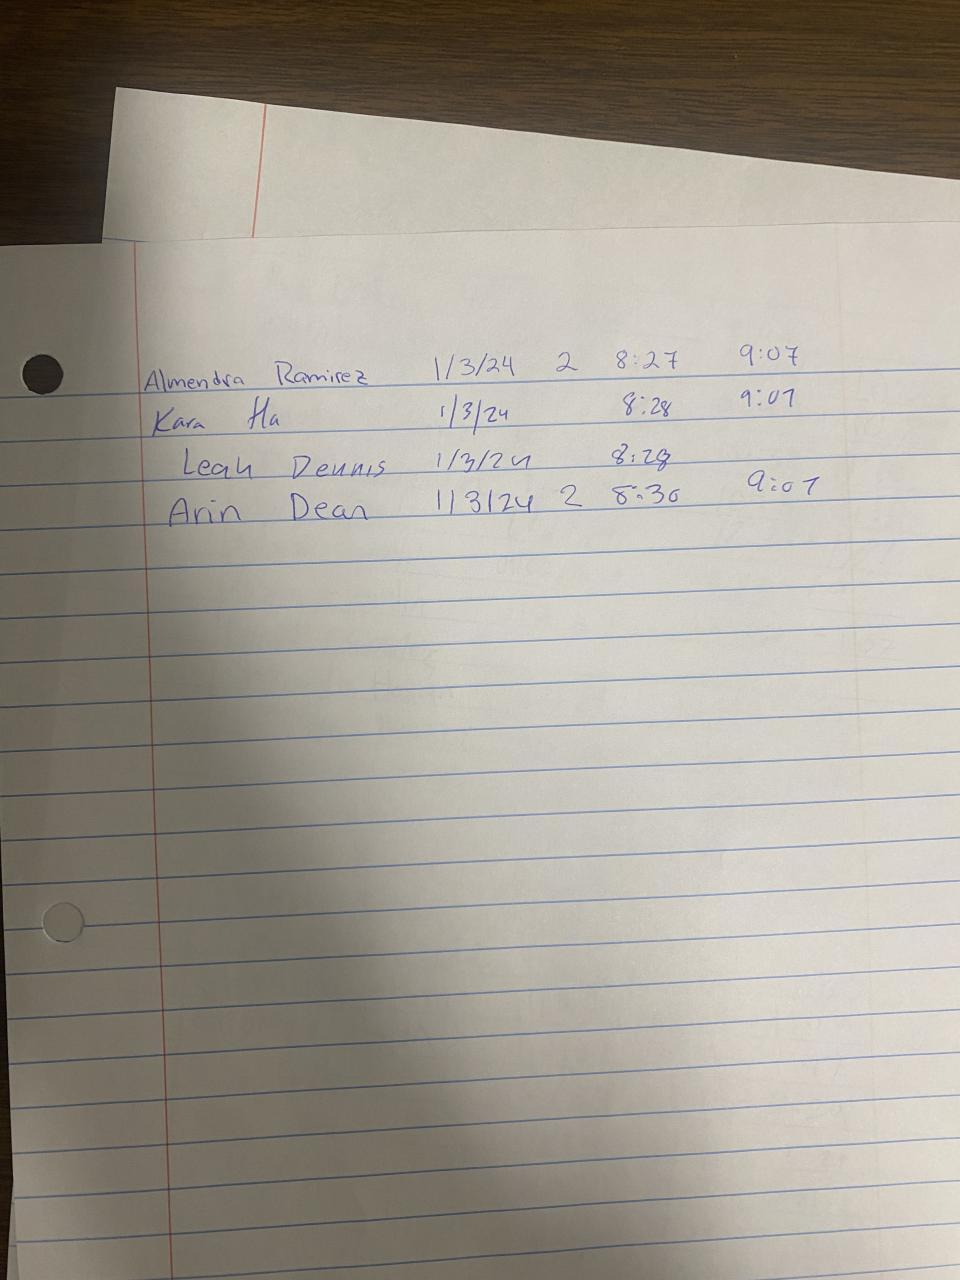 Almendra Ramirez 1/3/24 2 8:27 9:07
Kara Ha 1/3/24 8:28 9:07
Leah Dennis 1/3/24 8:28
Arin Dean 1/3/24 2 8:30 9:07